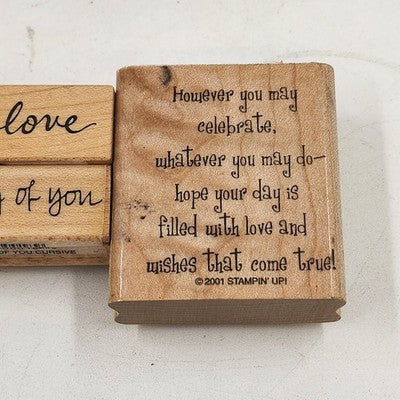 love
of you
OF YOU CURSIVE
However you may
celebrate,
whatever you may do—
hope your day is
filled with love and
wishes that come true!
© 2001 STAMPIN' UP!